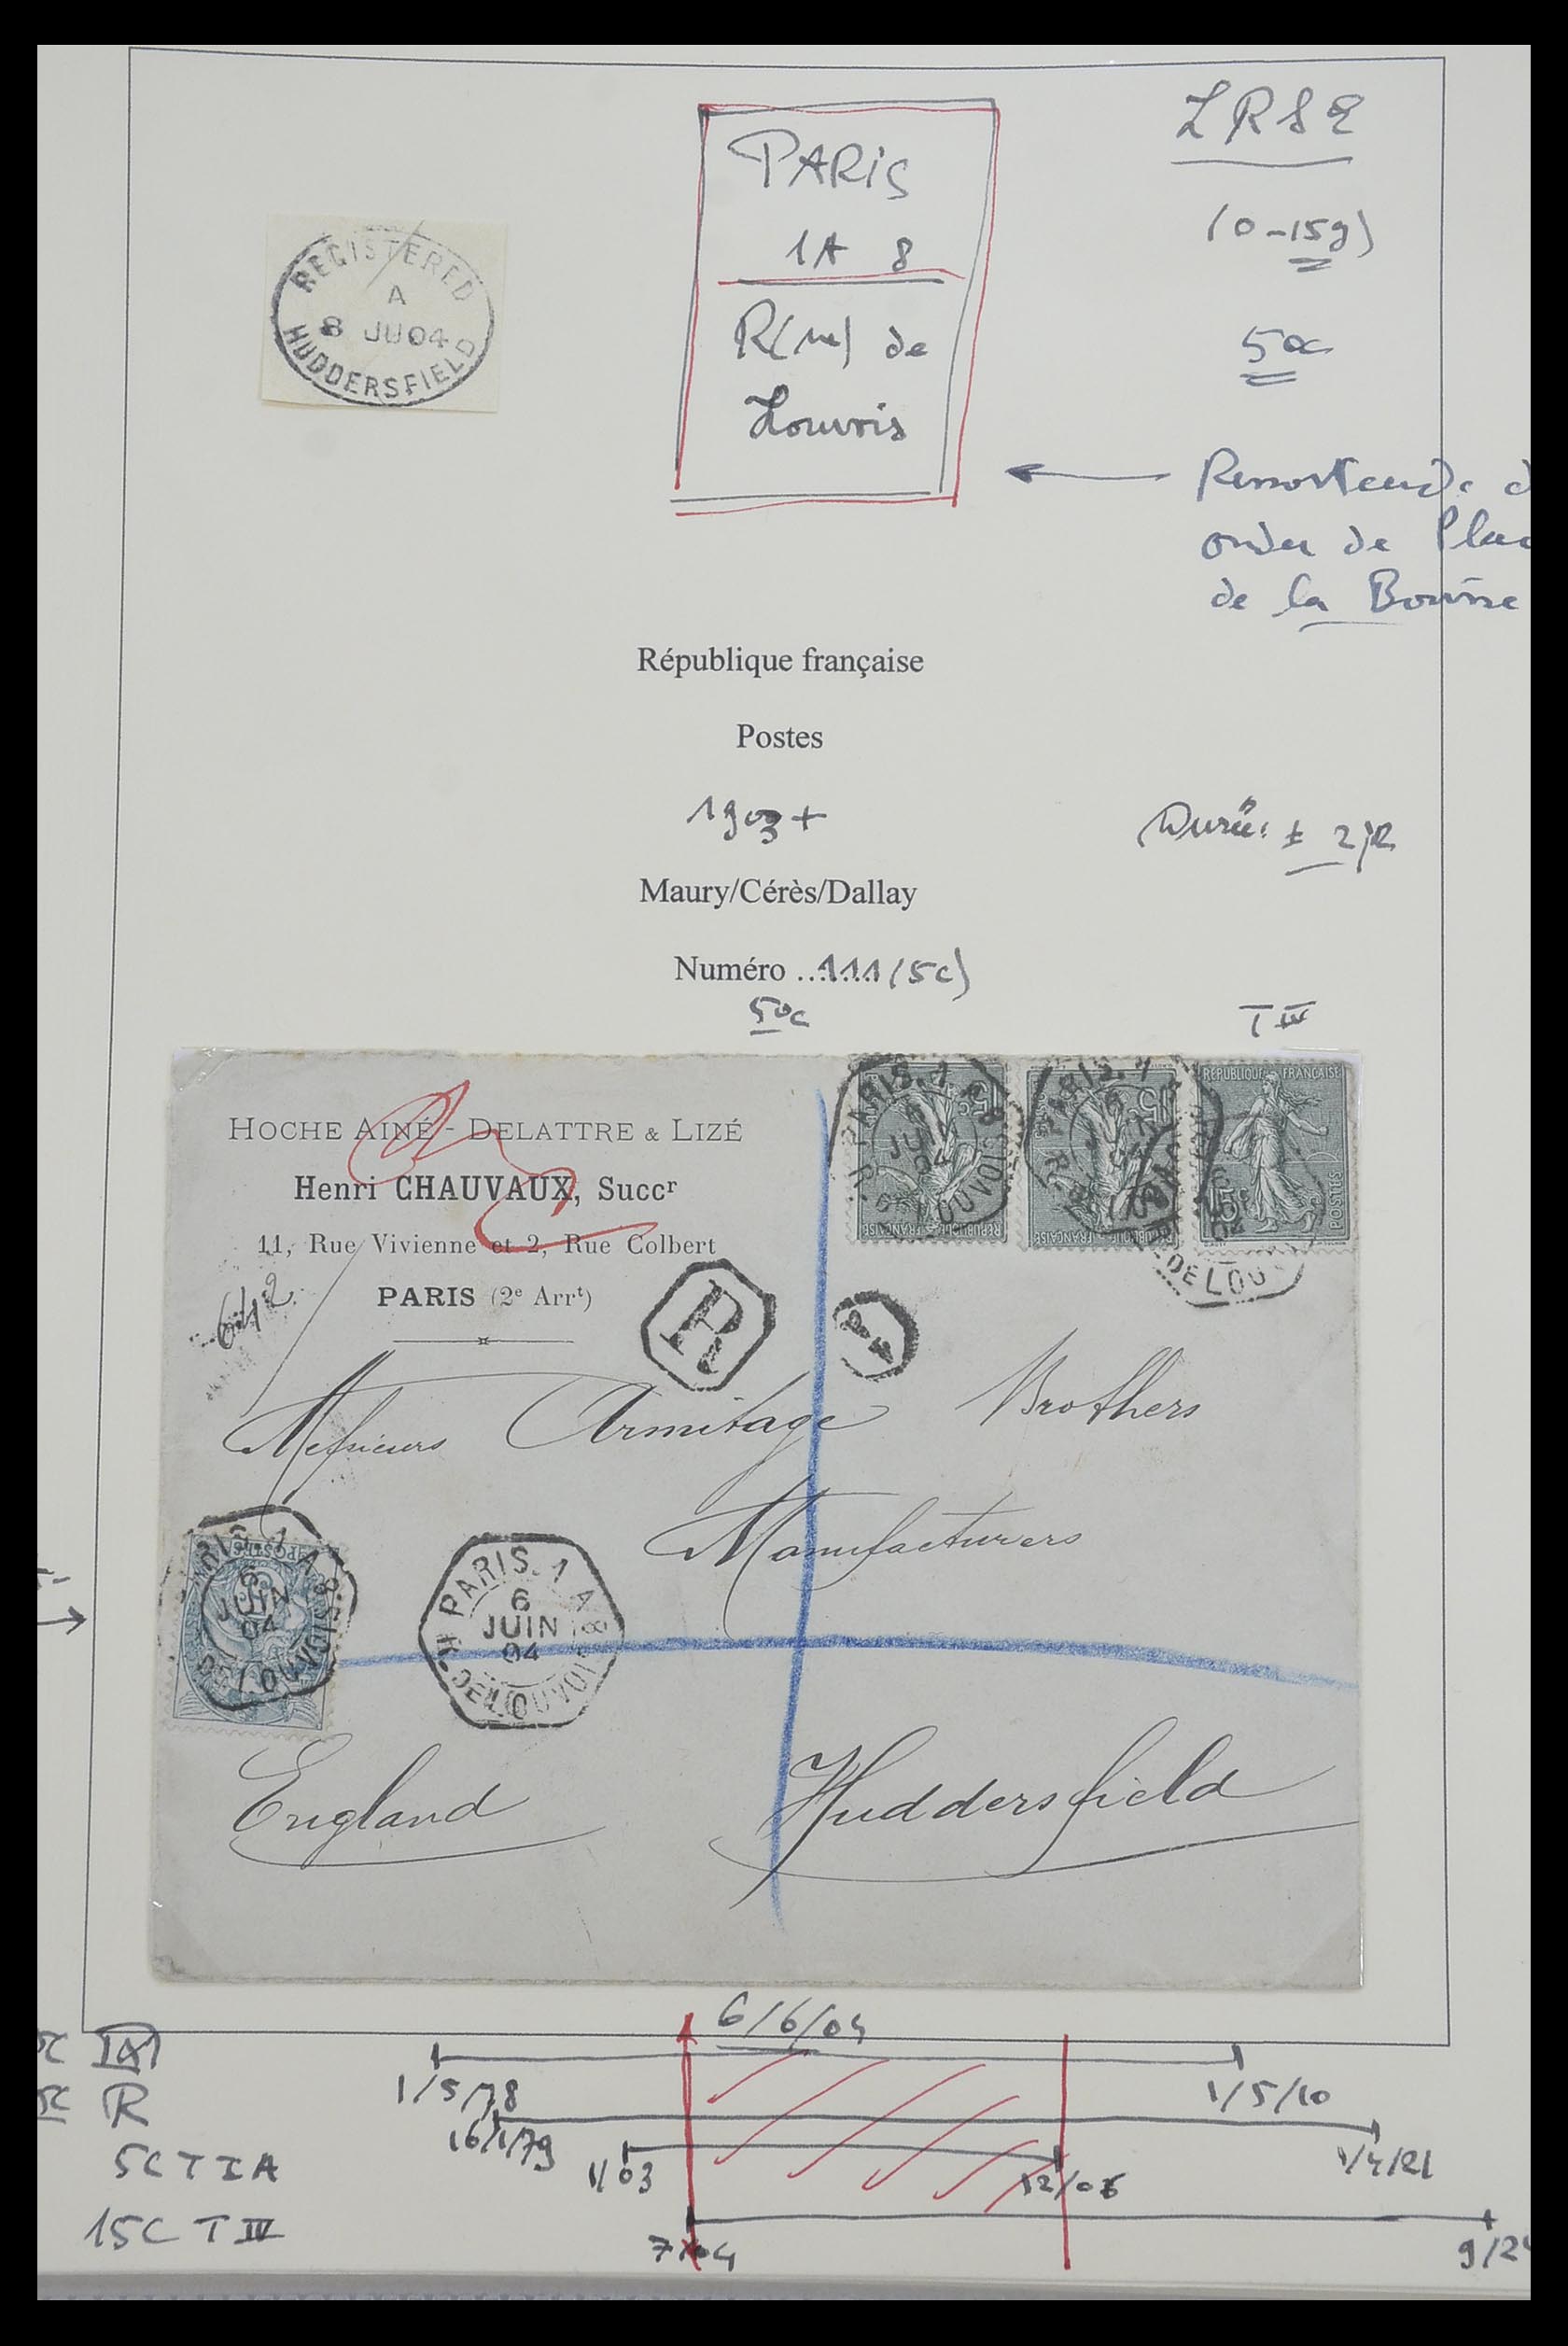 LRSE
PARIS
1A 8
(0-15g)
REGISTERED
A
8 JU 04
HUDDERSFIELD
R(ue) de
Louvois
50c
onder de
de la Bourse
République française
Postes
1903+
Durée: ± 2 jr
Maury/Cérès/Dallay
Numéro ..111 (5c)
50c
T IV
HOCHE AINÉ - DELATTRE & LIZÉ
Henri CHAUVAUX, Succr
11, Rue Vivienne et 2, Rue Colbert
PARIS (2e Arrt)
642
PARIS. 1 A 8
JUIN
04
REPUBLIQUE FRANÇAISE
15c
POSTES
R
Messieurs Armitage Brothers
Manufacturers
6
JUIN
04
PARIS. 1 A 8
6
JUIN
04
R. DE LOUVOIS
England
Huddersfield
6/6/04
1/5/78
1/5/10
R
16/1/79
1/4/21
5C T I A
1/03
12/06
15C T IV
7/04